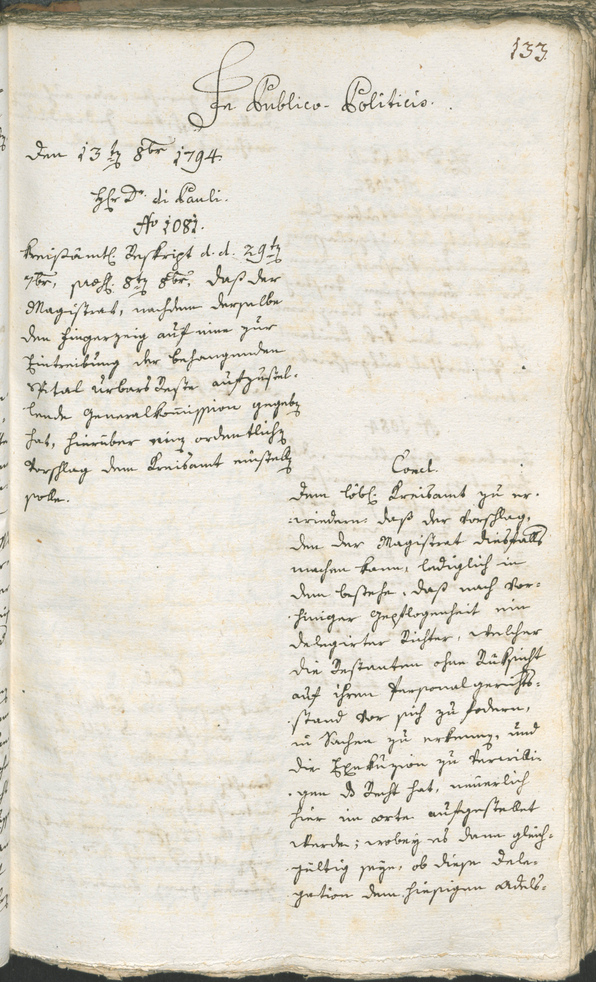 133
In Publico-Politicis.
den 13 ten 8br 1794
Hr Dr. di Pauli.
No 1081.
Kreisämtl. Reskript d. d. 29 ten
7br, præs. 8ten 8br, daß der
Magistrat, nachdem derselbe
den Fingerzeig auf eine zur
Eintreibung der behangenden
Spital urbars Reste aufzustel-
lende Generalkom̅ission gegeben
hat, hierüber einen ordentlichen
Vorschlag dem Kreisamt einstellen
solle.
Concl.
Dem löbl. Kreisamt zu er-
wiedern: daß der Vorschlag,
den der Magistrat diesfalls
machen kann, lediglich in
dem bestehe, daß nach vor-
hiniger Gepflogenheit ein
delegirter Richter, welcher
die Restanten ohne Rüksicht
auf ihren Personalgerichts-
stand vor sich zu fodern,
in Sachen zu erkennen, und
die Exekuzion zu verwilli-
gen das Recht hat, neuerlich
hier im orte aufgestellet
werde; wobey es dann gleich-
gültig seye, ob diese Dele-
gation dem hiesigen Adels-